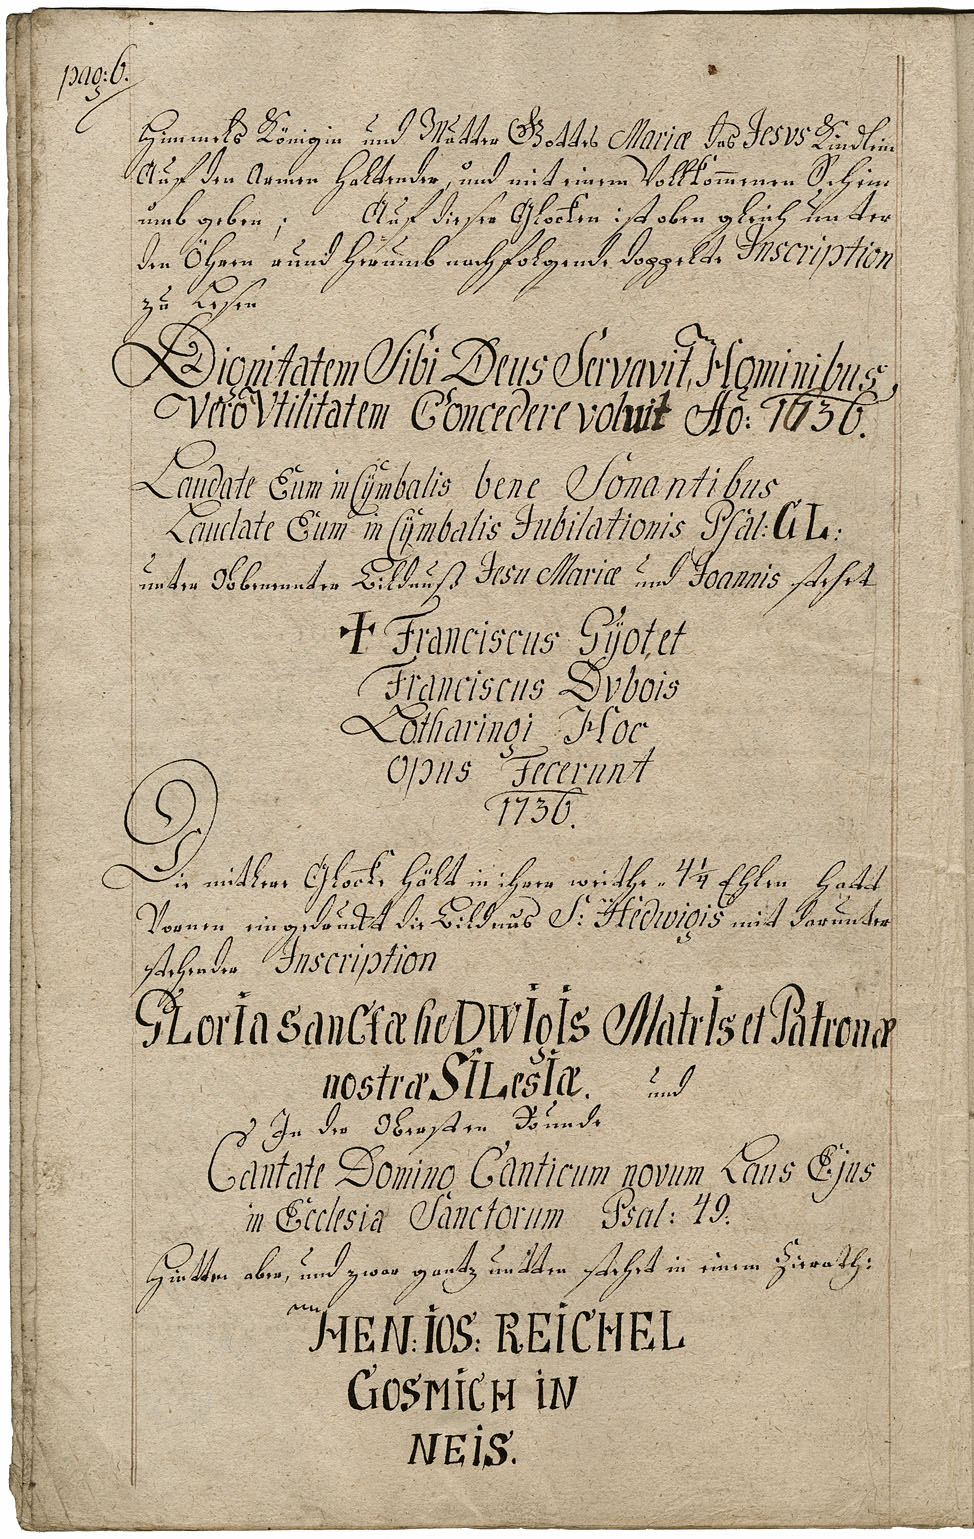 pag: 6.
Himmels Königin und Mutter Gottes Mariæ das Jesvs Kindlein
Auf den Armen Haltender, und mit einem Vollkommenen Schein
umb geben; Auf dieser Glocken ist oben gleich unter
den Öhren rund herumb nachfolgende doppelte Inscription
zu Lesen
Dignitatem Sibi Deus Servavit, Hominibus,
Vero Vtilitatem Concedere voluit Ao: 1736.
Laudate Eum in Cymbalis bene Sonantibus
Laudate Eum in Cymbalis Jubilationis Psal: CL:
unter Obbenennter Bildnuß Jesu Mariæ und Joannis stehet
✝ Franciscus Gÿot, et
Franciscus Dvbois
Lotharingi Hoc
Opus Fecerunt
1736.
Die mitlere Glocke hält in ihrer weithe 4¼ Ehlen hatt
Vornen eingedruckt die Bildnus S: Hedwigis mit darunter
stehender Inscription
GLorIa sanCtæ heDWIgIs MatrIs et Patronæ
nostræ SILesIæ. und
In der Obersten Runde
Cantate Domino Canticum novum Laus Ejus
in Ecclesia Sanctorum Psal: 49.
Hintten aber, und zwar gantz untten stehet in einem Zierath:
HEN: IOS: REICHEL
GOSMICH IN
NEIS.